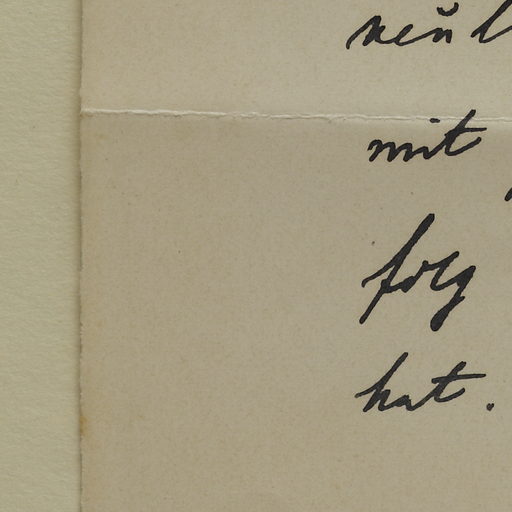 neul
mit
folg
hat.